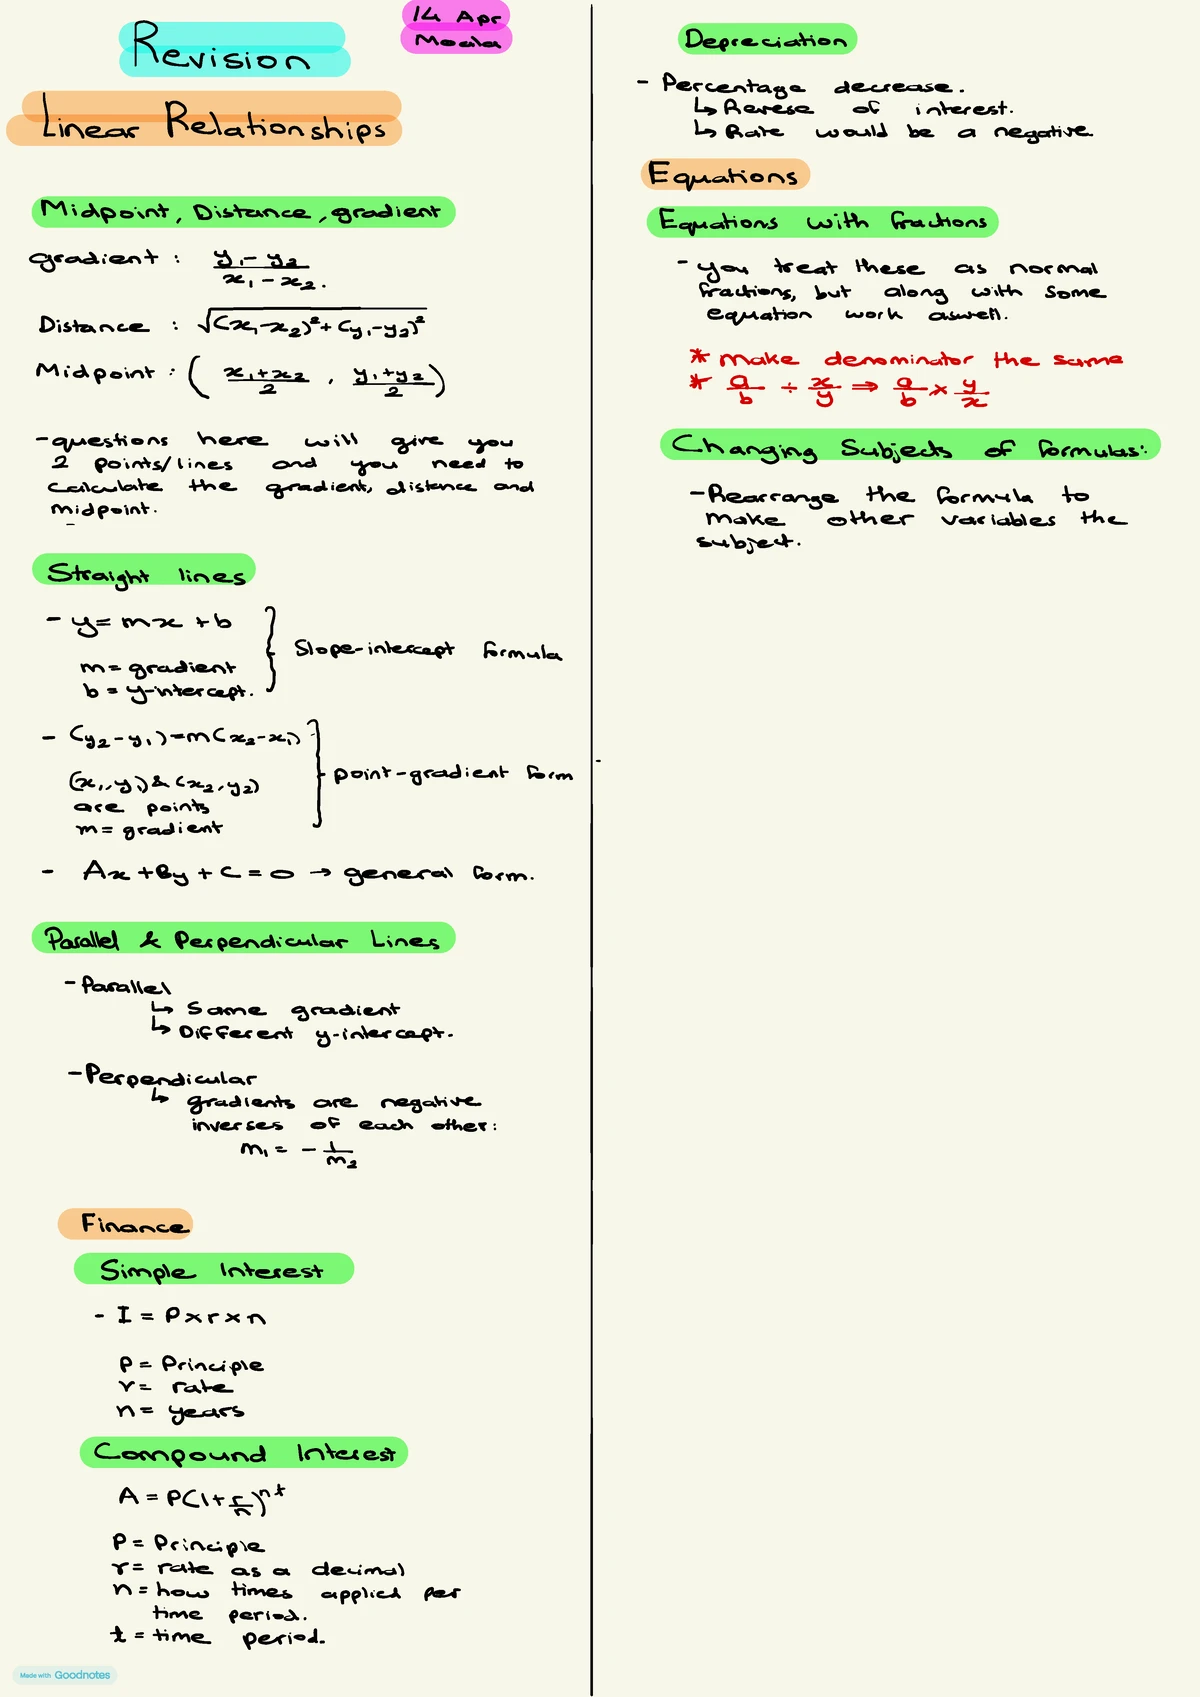 Revision
14 Apr
Moala
Linear Relationships
Midpoint, Distance, gradient
gradient : y₁ - y₂ / x₁ - x₂.
Distance : √(x₁-x₂)² + (y₁-y₂)²
Midpoint : ( x₁+x₂ / 2 , y₁+y₂ / 2 )
- questions here will give you
2 points/lines and you need to
calculate the gradient, distance and
midpoint.
Straight lines
- y = mx + b
m = gradient
b = y-intercept.
Slope-intercept formula
- (y₂ - y₁) = m(x₂ - x₁)
(x₁, y₁) & (x₂, y₂)
are points
m = gradient
point-gradient form
- Ax + By + C = 0 → general form.
Parallel & Perpendicular Lines
- Parallel
↳ Same gradient
↳ Different y-intercept.
- Perpendicular
↳ gradients are negative
inverses of each other:
m₁ = - 1/m₂
Finance
Simple Interest
- I = P × r × n
P = Principle
r = rate
n = years
Compound Interest
A = P(1 + r/n)ⁿᵗ
P = Principle
r = rate as a decimal
n = how times applied per
time period.
t = time period.
Made with Goodnotes
Depreciation
- Percentage decrease.
↳ Reverse of interest.
↳ Rate would be a negative
Equations
Equations with fractions
- you treat these as normal
fractions, but along with some
equation work aswell.
* make denominator the same
* a/b ÷ x/y ⇒ a/b × y/x
Changing Subjects of formulas:
- Rearrange the formula to
make other variables the
subject.